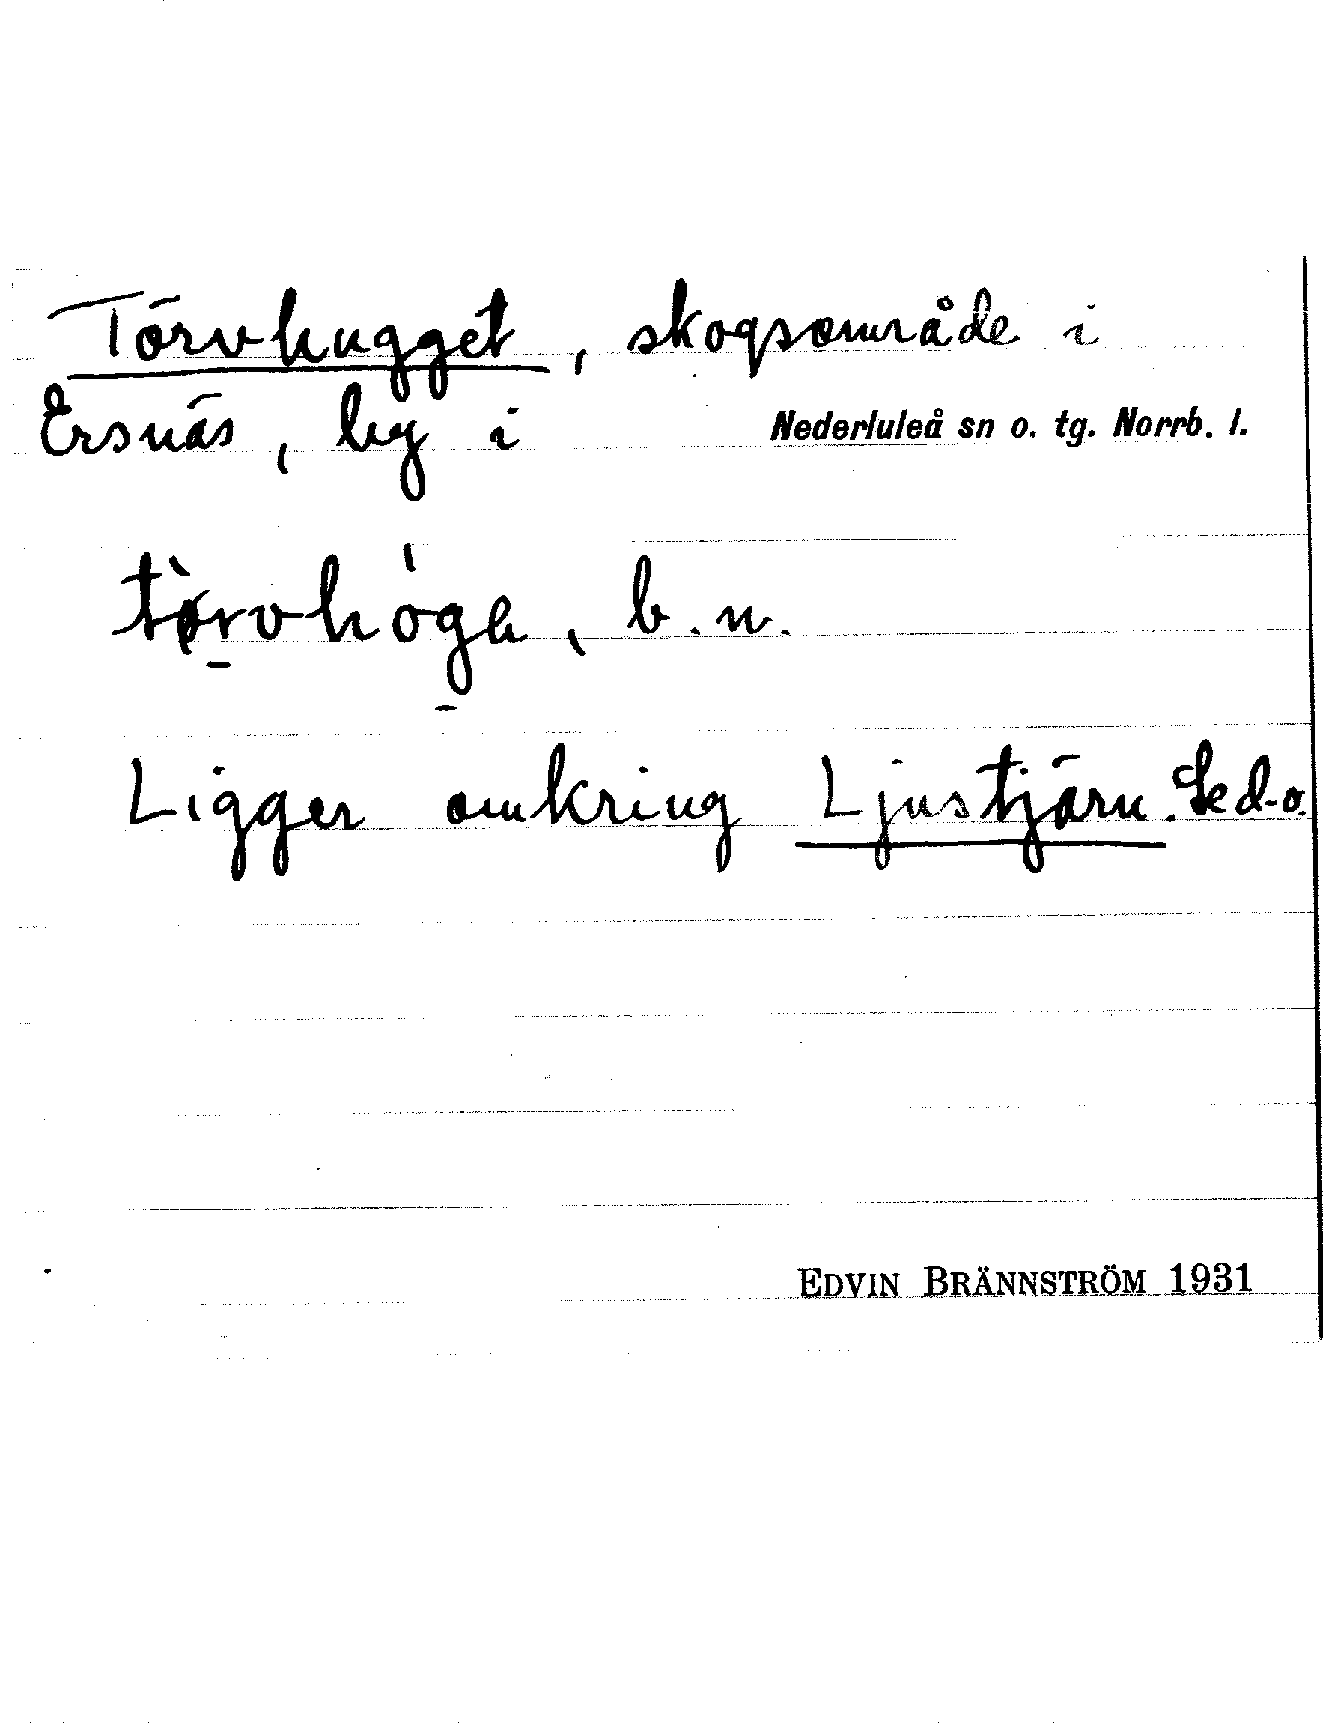 Törvhugget, skogsområde i
Ersnäs, by i Nederluleå sn o. tg. Norrb. l.
b. n.
Ligger omkring Ljustjärn. Se d. o.
EDVIN BRÄNNSTRÖM 1931